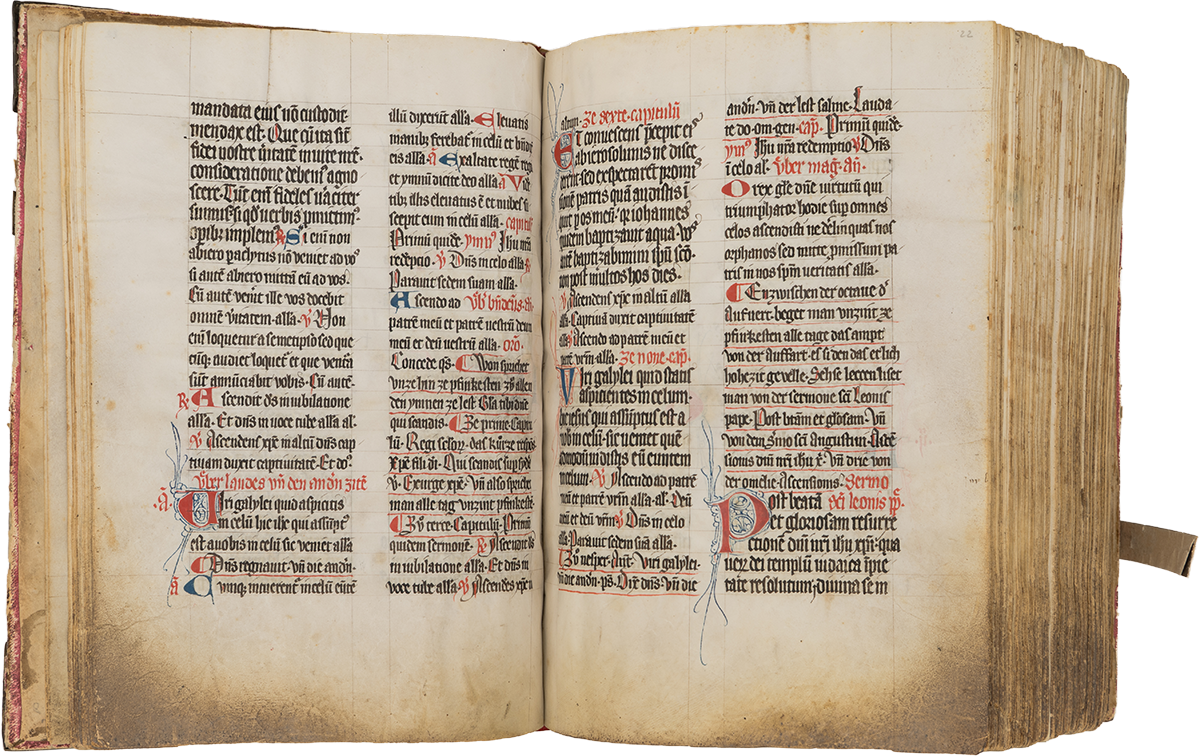 mandata eius nō custodit
mendax est. Que cū ita sint
fideli consideratione debemus agno
scere. Tūc enī fideles
si
opib; implem⁹ ℟ Si enī non
abiero paraclytus nō veniet ad vos
si autē abiero mittā eū ad vos.
Cū autē venerit ille vos docebit
omnem veritatem. alla. ℣ Non
enī loquetur a semetipso sed que
cūq; audiet loquet͛ et que ventura
sūt annūciabit vobis. Cū autē.
℟ Ascendit ds̄ in iubilatione
alla. Et dn̄s in voce tube alla al.
℣ Ascendens xp̄c in altū dn̄s cap
tiuam duxit captiuitatē. Et do⁹.
vber laudes vn̄ den andn̄ zitē
·ā· Viri galylei quid aspicitis
in celū hic ihc qui assūpt⁹
est a vobis in celū sic veniet alla
Dn̄s regnauit. vn̄ die andn̄.
ā Cumq; intuerent͛ in celū eūtē
illū dixerunt alla. Eleuatis
manib; ferebat͛ in celū et bn̄dix
eis alla ā Exaltate regē regū
et ymnū dicite deo alla ā Vidē
tib; illis eleuatus ē et nubes su
scepit eum in celū alla. capitlm̄
Primū quidē. ymn⁹ Jhū nr̄a
redēpcio. ℣ Dn̄s in celo alla
Parauit sedem suam alla.
Ascendo ad vb̄ bn̄deiꝰ. ā.
patrē meū et patrē vestrū deum
meū et deū vestrū alla. orō.
Concede qs̄. Von spricher
vnze hin ze pfinkesten zv̊ allen
den ymnen ze lest. Gla tibi dn̄e
qui scandis. Ze prime. Capi
lū. Regi sclor̄. das kv̊rze respōs
Xp̄e fili di. Qui scandis sup sydā
℣. Exurge xp̄e. vn̄ also sprichet
man alle tag vnzint pfinkestē.
Zv̊ terce. Capitulū. Primū
quidem sermonē. ℟ Ascendit ds̄
in iubilatione alla. Et dn̄s in
voce tube alla ℣ Ascendēs xp̄c in
22
altum. Ze sexte. capitulū
Et conuescens p̄cepit eis
ab ierosolimis ne disce
derent sed expectarēt promis
sionē patris quā audistis
p os meū. q̄ iohannes
quidem baptizauit aqua. vos
autē baptizabimini spū sc̄o
non post multos hos dies.
℣ Ascendens xp̄c in altū alla
alla. Captiuā duxit captiuitatē
alla ℣ Ascendo ad patrē meū et
patrē vrm̄. alla. Ze none. cap̄.
Viri galylei quid statis
aspicientes in celum.
hic ihesus qui assūptus est a
vob̄ in celū. sic veniet quē
admodū vidistis eū euntem
in celum. ℣ Ascendo ad patrē
meū et patrē vrm̄ alla. al. Deū
meū et deū vrm̄ ℣ Dn̄s in celo
alla. Parauit sedem suā alla.
Zv̊ vesper. Ant̄. Viri galylei.
vn̄ die andn̄. ps̄. Dix̄ dn̄s. vn̄ dit
andn̄. vn̄ der lest salme. Lauda
te do. om. gen. cap̄. Primū quidē.
ymn⁹ Jhū nr̄a redemptio ℣ Dn̄s
in celo al. Vber mag. an̄.
O rex gle dn̄e virtutū qui
triumphator hodie sup omnes
celos ascendisti ne derelinquas nos
orphanos sed mitte promissum pa
tris in nos spm̄ veritatis alla.
Enzwischen der octaue dˢ
Auffuert. beget man vnzint ze
pfinkesten alle tage das ampt
von der Auffart. es si den das etlich
hohezit geuelle. Sehse leccen liset
man von der sermone sci Leonis
pape. Post beatā et glosam. vn̄
von den sm̄o sci Augustin. Ascē
sionis dn̄i nr̄i ihū xp̄i. vn̄ drie von
der omelie. Ascensionis. Sermo
Post beatā sci leonis pp̄.
et gloriosam resurre
ctionē dn̄i nr̄i ihū xp̄i. qua
verū dei templū iudaica īpie
tate resolutum. diuina se in